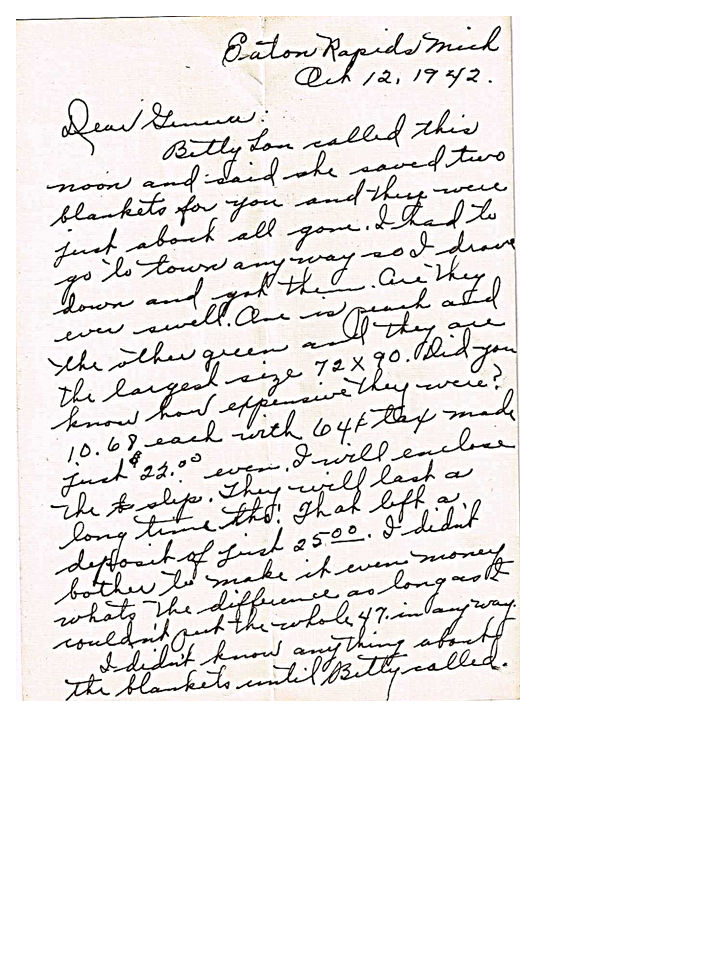 Eaton Rapids Mich
Oct 12, 1942.
Dear Geneva:
Betty Lou called this
noon and said she saved two
blankets for you and they were
just about all gone. I had to
go to town anyway so I drove
down and got them. Are they
ever swell. One is peach and
the other green and they are
the largest size 72 X 90. Did you
know how expensive they were?
10.68 each with 64¢ tax made
just $22.00 even. I will enclose
the slip. They will last a
long time tho! That left a
deposit of just 25.00. I didn't
bother to make it even money
whats the difference as long as I
couldn't put the whole 47. in anyway.
I didn't know anything about
the blankets until Betty called.